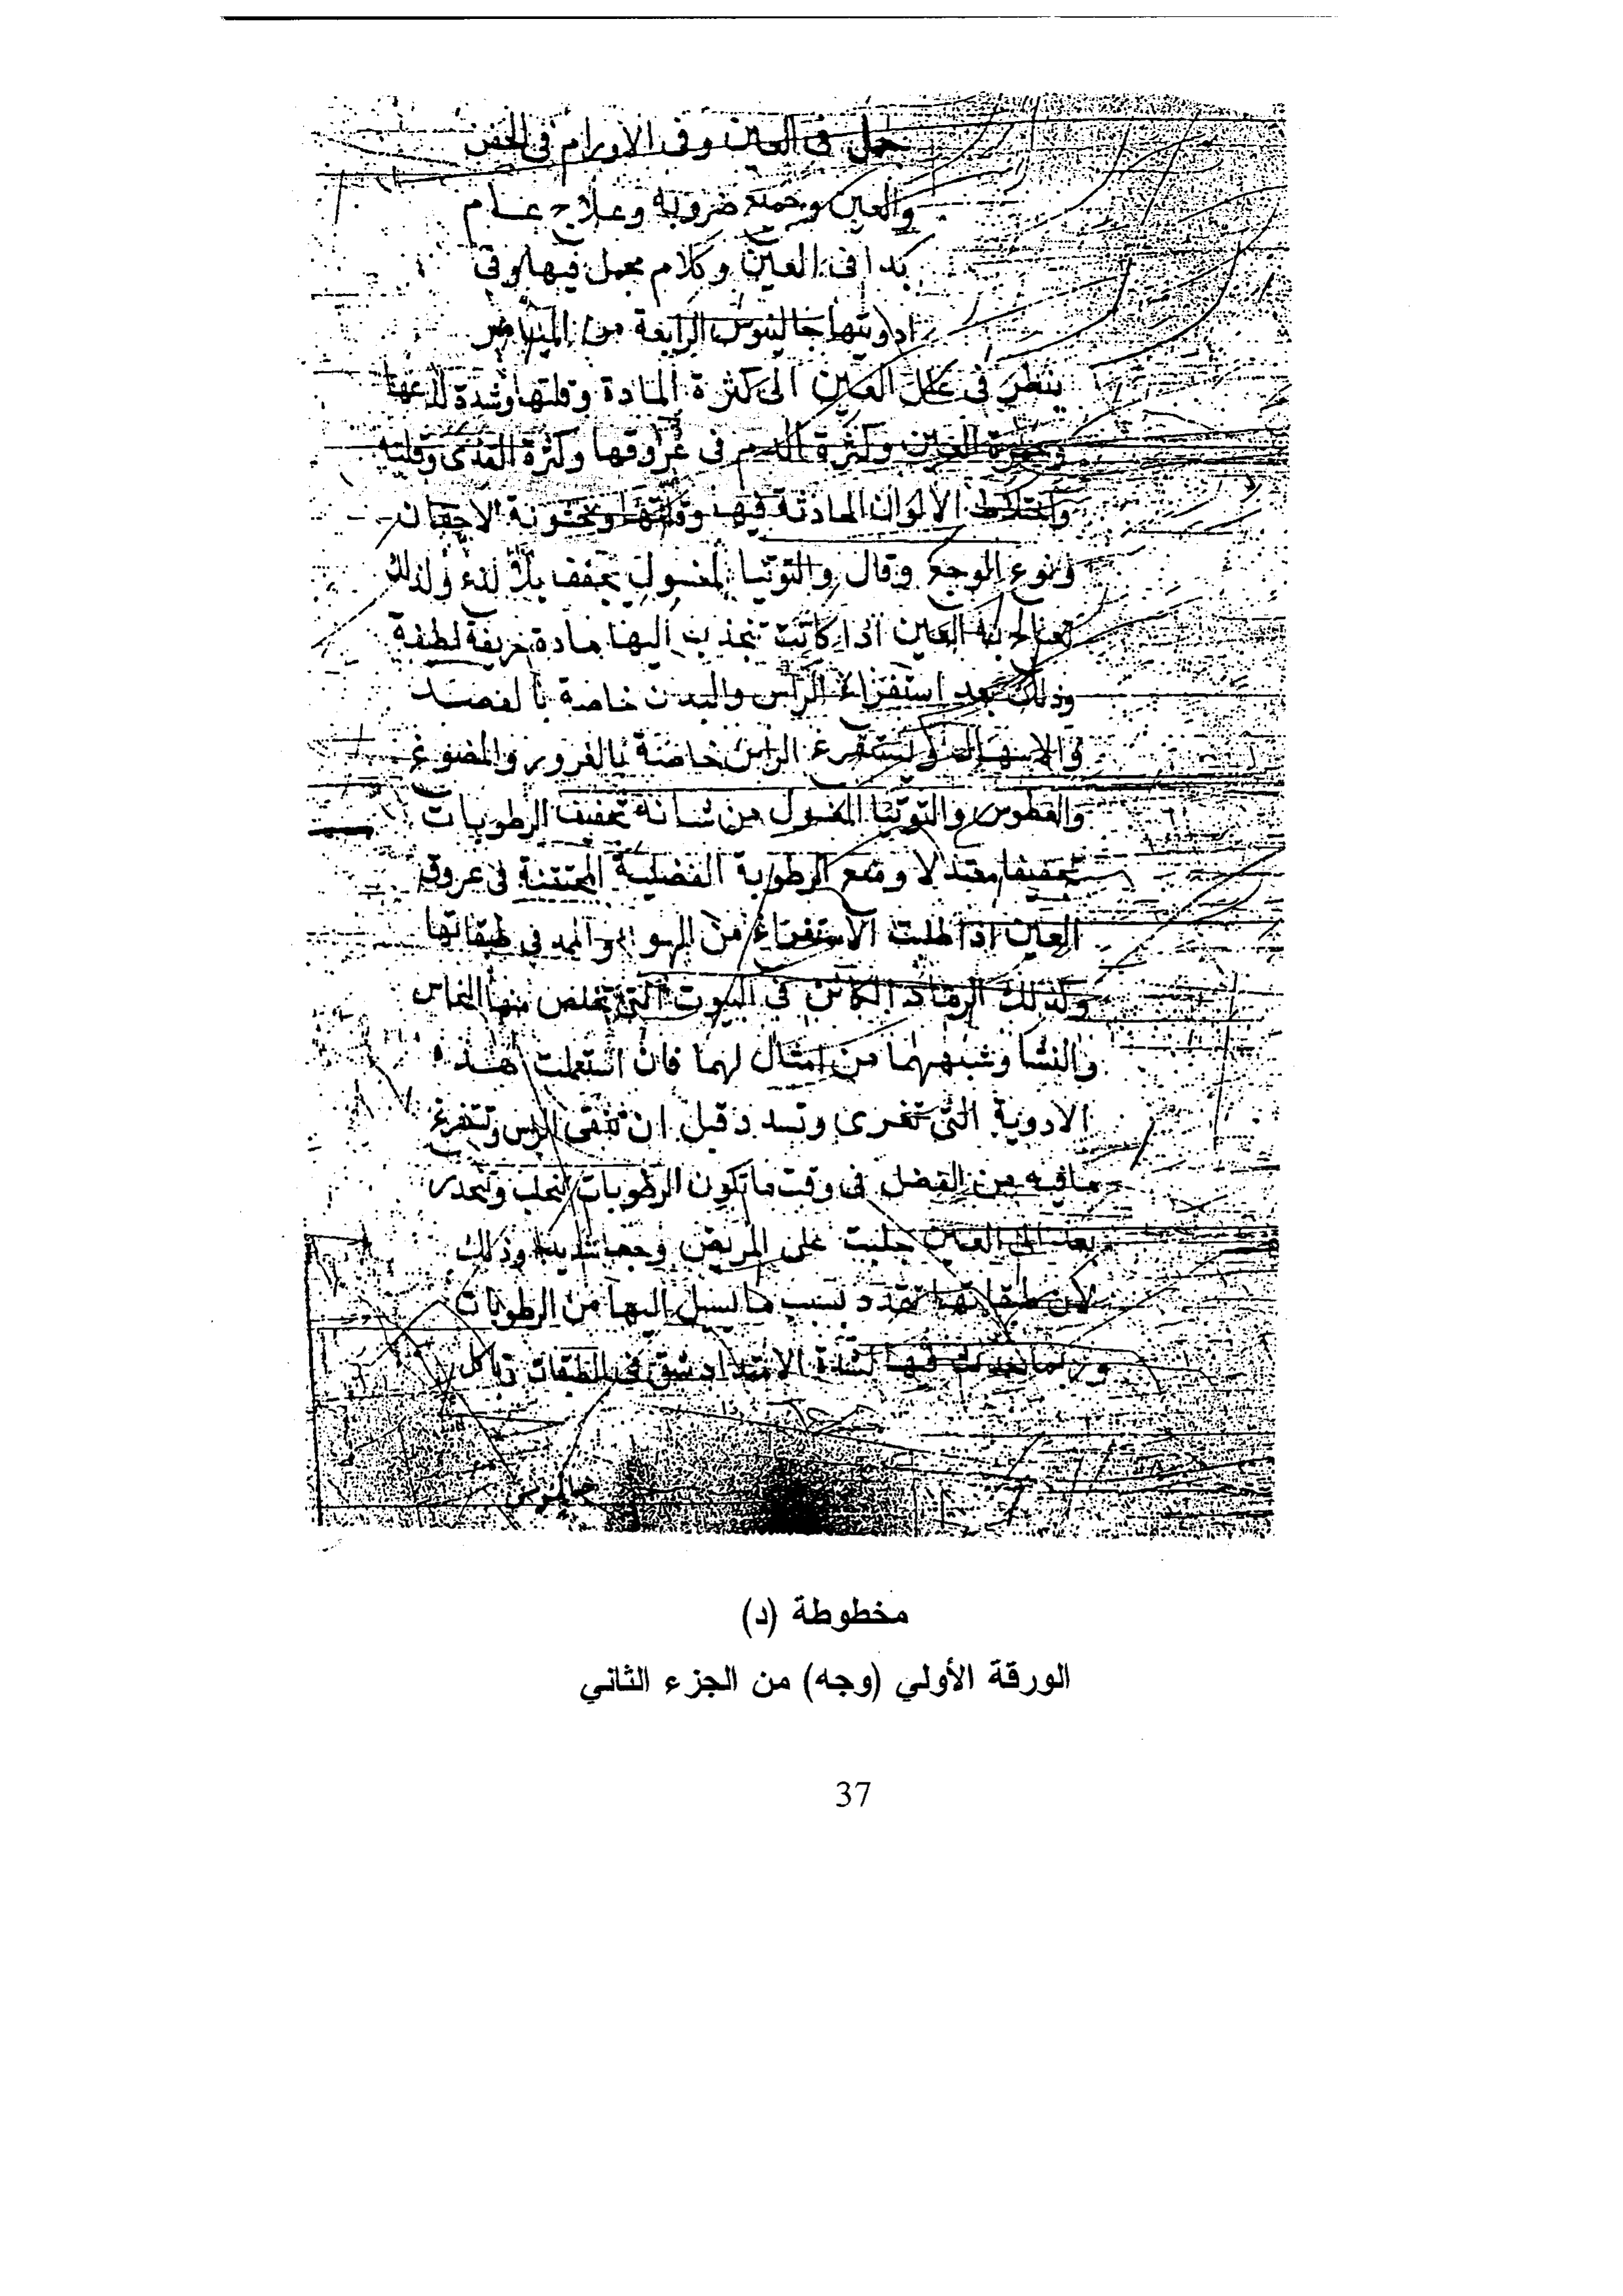 جمل في العين وفى الاورام في الجفن
والعين وجميع ضروبه وعلاج عام
في العين وكلام مجمل فيها وفى
ادويتها جالينوس الرابعة من الميامر
ينظر فى علل العين الى كثرة المادة وقلتها وشدة لذعها
وحمرة العين وكثرة الدم فى عروقها وكثرة القذى وقلته
واختلاط الالوان الحادثة فيها وقلتها وخشونة الاجفان
ونوع الوجع وقال والتوتيا المغسول يجفف بلا لذع ولذلك
تعالج به العين اذا كانت تنجذب اليها مادة حريفة لطيفة
وذلك بعد استفراغ الرأس والبدن خاصة بالفصد
والاسهال وليستفرغ الراس خاصة بالغرور والمضوغ
والعطوس والتوتيا المغسول من شانه تجفيف الرطوبات
تجفيفا معتدلا ومنع الرطوبة الفضلية المحتقنة فى عروق
العين اذا طلبت الاستفراغ من في طبقاتها
وكذلك الرماد الكائن في البيوت التى يخلص منها النحاس
والنشا وشبههما من امثال لهما فان استعملت هذه
الادوية التى تغرى وتسدد قبل ان تنقى الراس وتستفرغ
مافيه من الفضل فى وقت ماتكون الرطوبات تتحلب وتنحدر
بعد الى العين جلبت على المريض وجعا شديدا وذلك
لان طبقاتها تتمدد بسبب ما يسيل اليها من الرطوبات
وربما حدث فيها لشدة الامتداد شق فى الطبقات وتاكل
جالينوس
مخطوطة (د)
الورقة الأولي (وجه) من الجزء الثاني
37